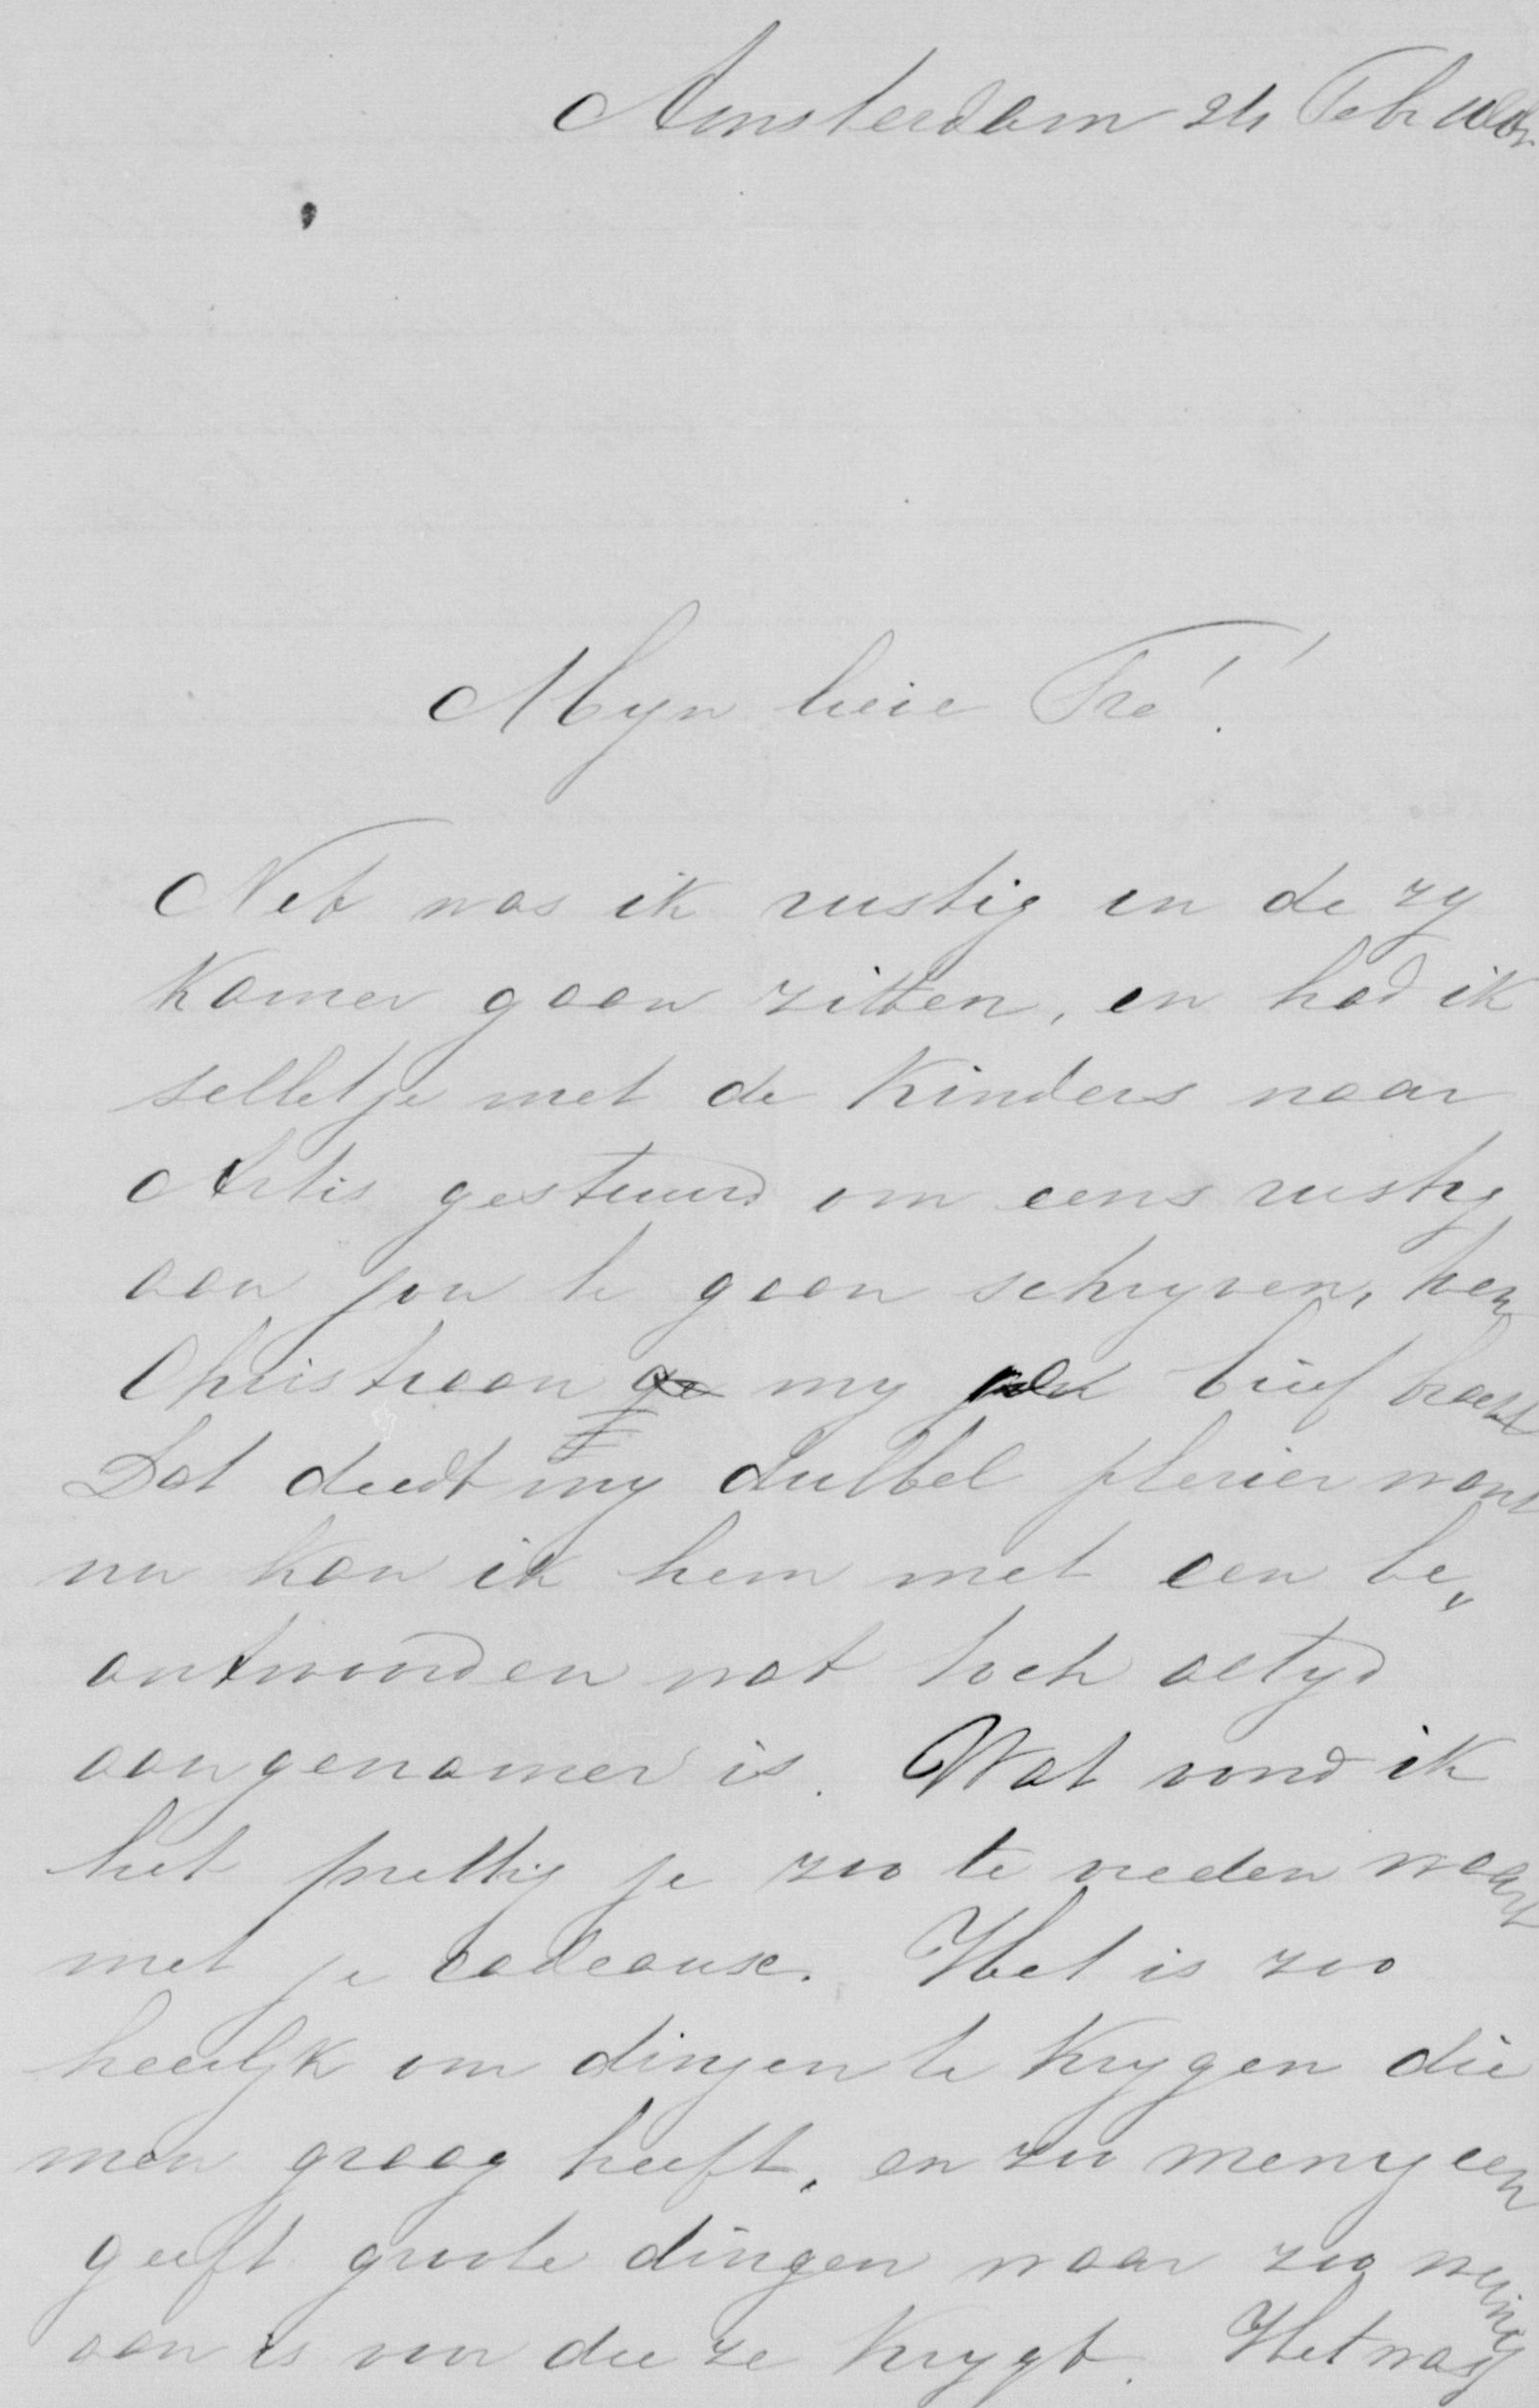 Amsterdam 24 Febr
Myn lieve Fré!
Net was ik rustig in de zy
kamer gaan zitten, en had ik
selletje met de kinders naar
Artis gestuurd om eens rustig
aan jou te gaan schryven, toen
Christiaan my brief bracht
Dat deedt my dubbel plesier want
nu kan ik hem met een be„
antwoorden wat toch altyd
aangenamer is. Wat vond ik
het prettig je zoo te vreden waart
met je cadeaux. Het is zoo
heerlyk om dingen te krygen die
men graag heeft, en zoo menigeen
geeft groote dingen waar zoo weinig
aan is voor die ze krygt. Het was